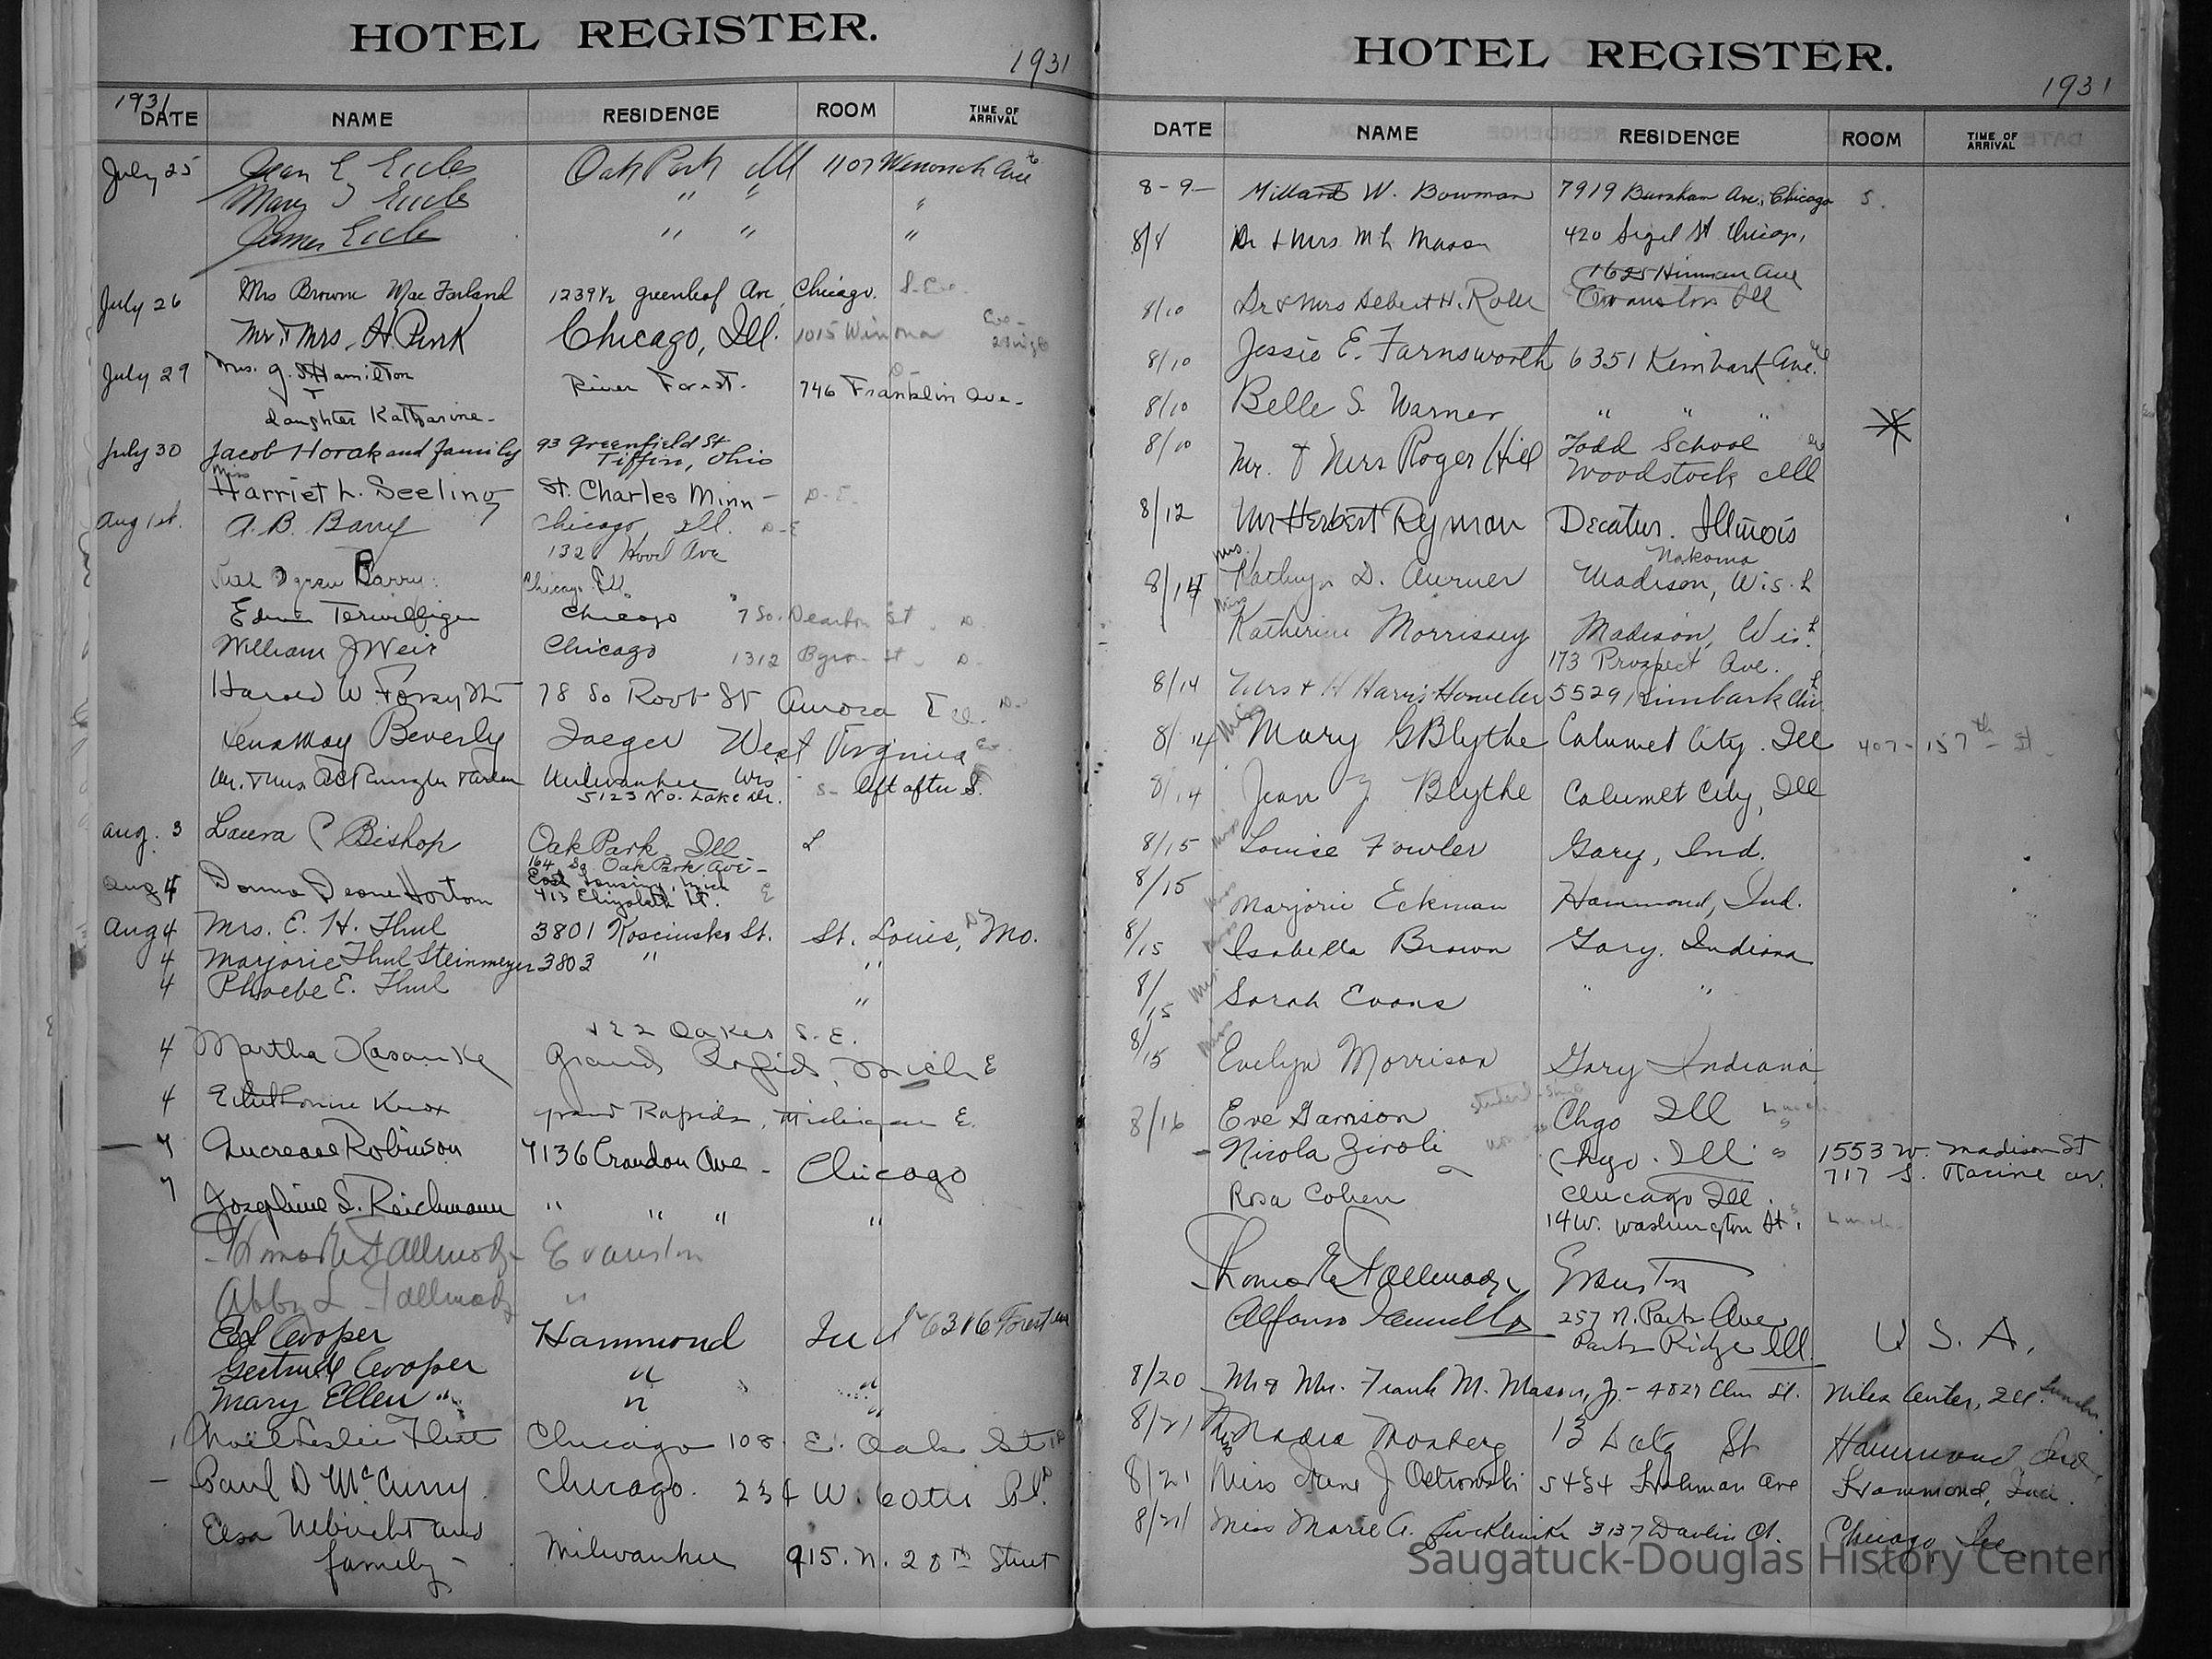 HOTEL REGISTER.
1931
1931
DATE NAME RESIDENCE ROOM TIME OF ARRIVAL
July 25 Jean E Eccles Oak Park Ill 1107 Wenonah Ave
Mary J Eccles " " "
James Eccles " " "
July 26 Mrs Browne MacFarland 1239½ Greenleaf Ave Chicago.
Mr. & Mrs. H. Punk Chicago, Ill. 1015 Winona
July 29 Mrs. G. Hamilton River Forest. 746 Franklin Ave.
& daughter Katharine -
July 30 Jacob Horak and family 93 Greenfield St
Tiffin, Ohio
Miss
Harriet L. Seeling St. Charles Minn - D-E.
Aug 1st. A. B. Barry Chicago, Ill. D-E
132 Hood Ave
Barry. Chicago Ill.
Edwin Terwilliger Chicago 7 So. Dearborn St. D.
William J Weir Chicago 1312 Byron St. D.
Harold W Forsyth 78 So Root St Aurora Ill. D-
Lena May Beverly Jaeger West Virginia
Mr. & Mrs. Milwaukee Wis
5123 No. Lake Dr. S- left after S.
Aug. 3 Laura C Bishop Oak Park Ill L
164 So Oak Park Ave -
Aug 4 Donna Deane Hortom East Lansing, Mich
413 Elizabeth St. E
Aug 4 Mrs. E. H. Thul 3801 Kosciusko St. St. Louis, Mo.
4 Marjorie Thul Steinmeyer 3803 " "
4 Phoebe E. Thul "
122 Oakes S. E.
4 Martha Grand Rapids, Mich E
4 Knox Grand Rapids, Michigan E.
7 Increase Robinson 7136 Crandon Ave - Chicago
7 Josephine L. Reichmann " " " "
Thomas E Tallmadge Evanston
Abby L Tallmadge "
Ed Cooper Hammond Ind 6316 Forest Ave
Gertrude Cooper " "
Mary Ellen " " "
Noel Leslie Flint Chicago 108 E. Oak St
Paul D McCurry Chicago. 234 W. 60th Pl.
Elsa Ulbricht and
family - Milwaukee 915. N. 28th Street
HOTEL REGISTER.
1931
DATE NAME RESIDENCE ROOM TIME OF ARRIVAL
8-9- Millard W. Bowman 7919 Burnham Ave., Chicago S.
8/8 Dr & Mrs. M L Mason 420 Sigel St Chicago,
1625 Hinman Ave
8/10 Dr & Mrs Delbert H. Evanston Ill
8/10 Jessie E. Farnsworth 6351 Kimbark Ave.
8/10 Belle S. Warner " " "
8/10 Mr. & Mrs Roger Hill Todd School
Woodstock Ill
8/12 Mr Herbert Ryman Decatur. Illinois
Mrs. Nakoma
8/14 Kathryn D. Aurner Madison, Wis. L
Miss
Katherine Morrissey Madison, Wis. L
173 Prospect Ave.
8/14 Mrs & H Harris 5529 Kimbark Ave
8/14 Miss Mary G Blythe Calumet City. Ill 407 - 157th St.
8/14 Jean Blythe Calumet City, Ill
8/15 Miss Louise Fowler Gary, Ind.
8/15 Miss Marjorie Eckman Hammond, Ind.
8/15 Miss Isabella Brown Gary, Indiana
8/15 Miss Sarah Evans " "
8/15 Miss Evelyn Morrison Gary Indiana
8/16 Eve Garrison Chgo Ill Lunch
Nicola Ziroli Chgo. Ill 1553 W. Madison St
717 S. Racine av.
Rosa Cohen Chicago Ill.
14 W. Washington St. Lunch
Thomas E Tallmadge Evanston
Alfonso Iannelli 257 N. Park Ave
Park Ridge Ill. U. S. A.
8/20 Mr & Mrs. Frank M. Mason, Jr. - 4827 Elm St. Niles Center, Ill. Lunch
8/21 Miss Nadia 13 Doty St Hammond Ind.
8/21 Miss Jane J Ostrowski 5454 Hohman Ave Hammond, Ind.
8/21 Miss Marie A. 3137 Davlin Ct. Chicago, Ill
Saugatuck-Douglas History Center